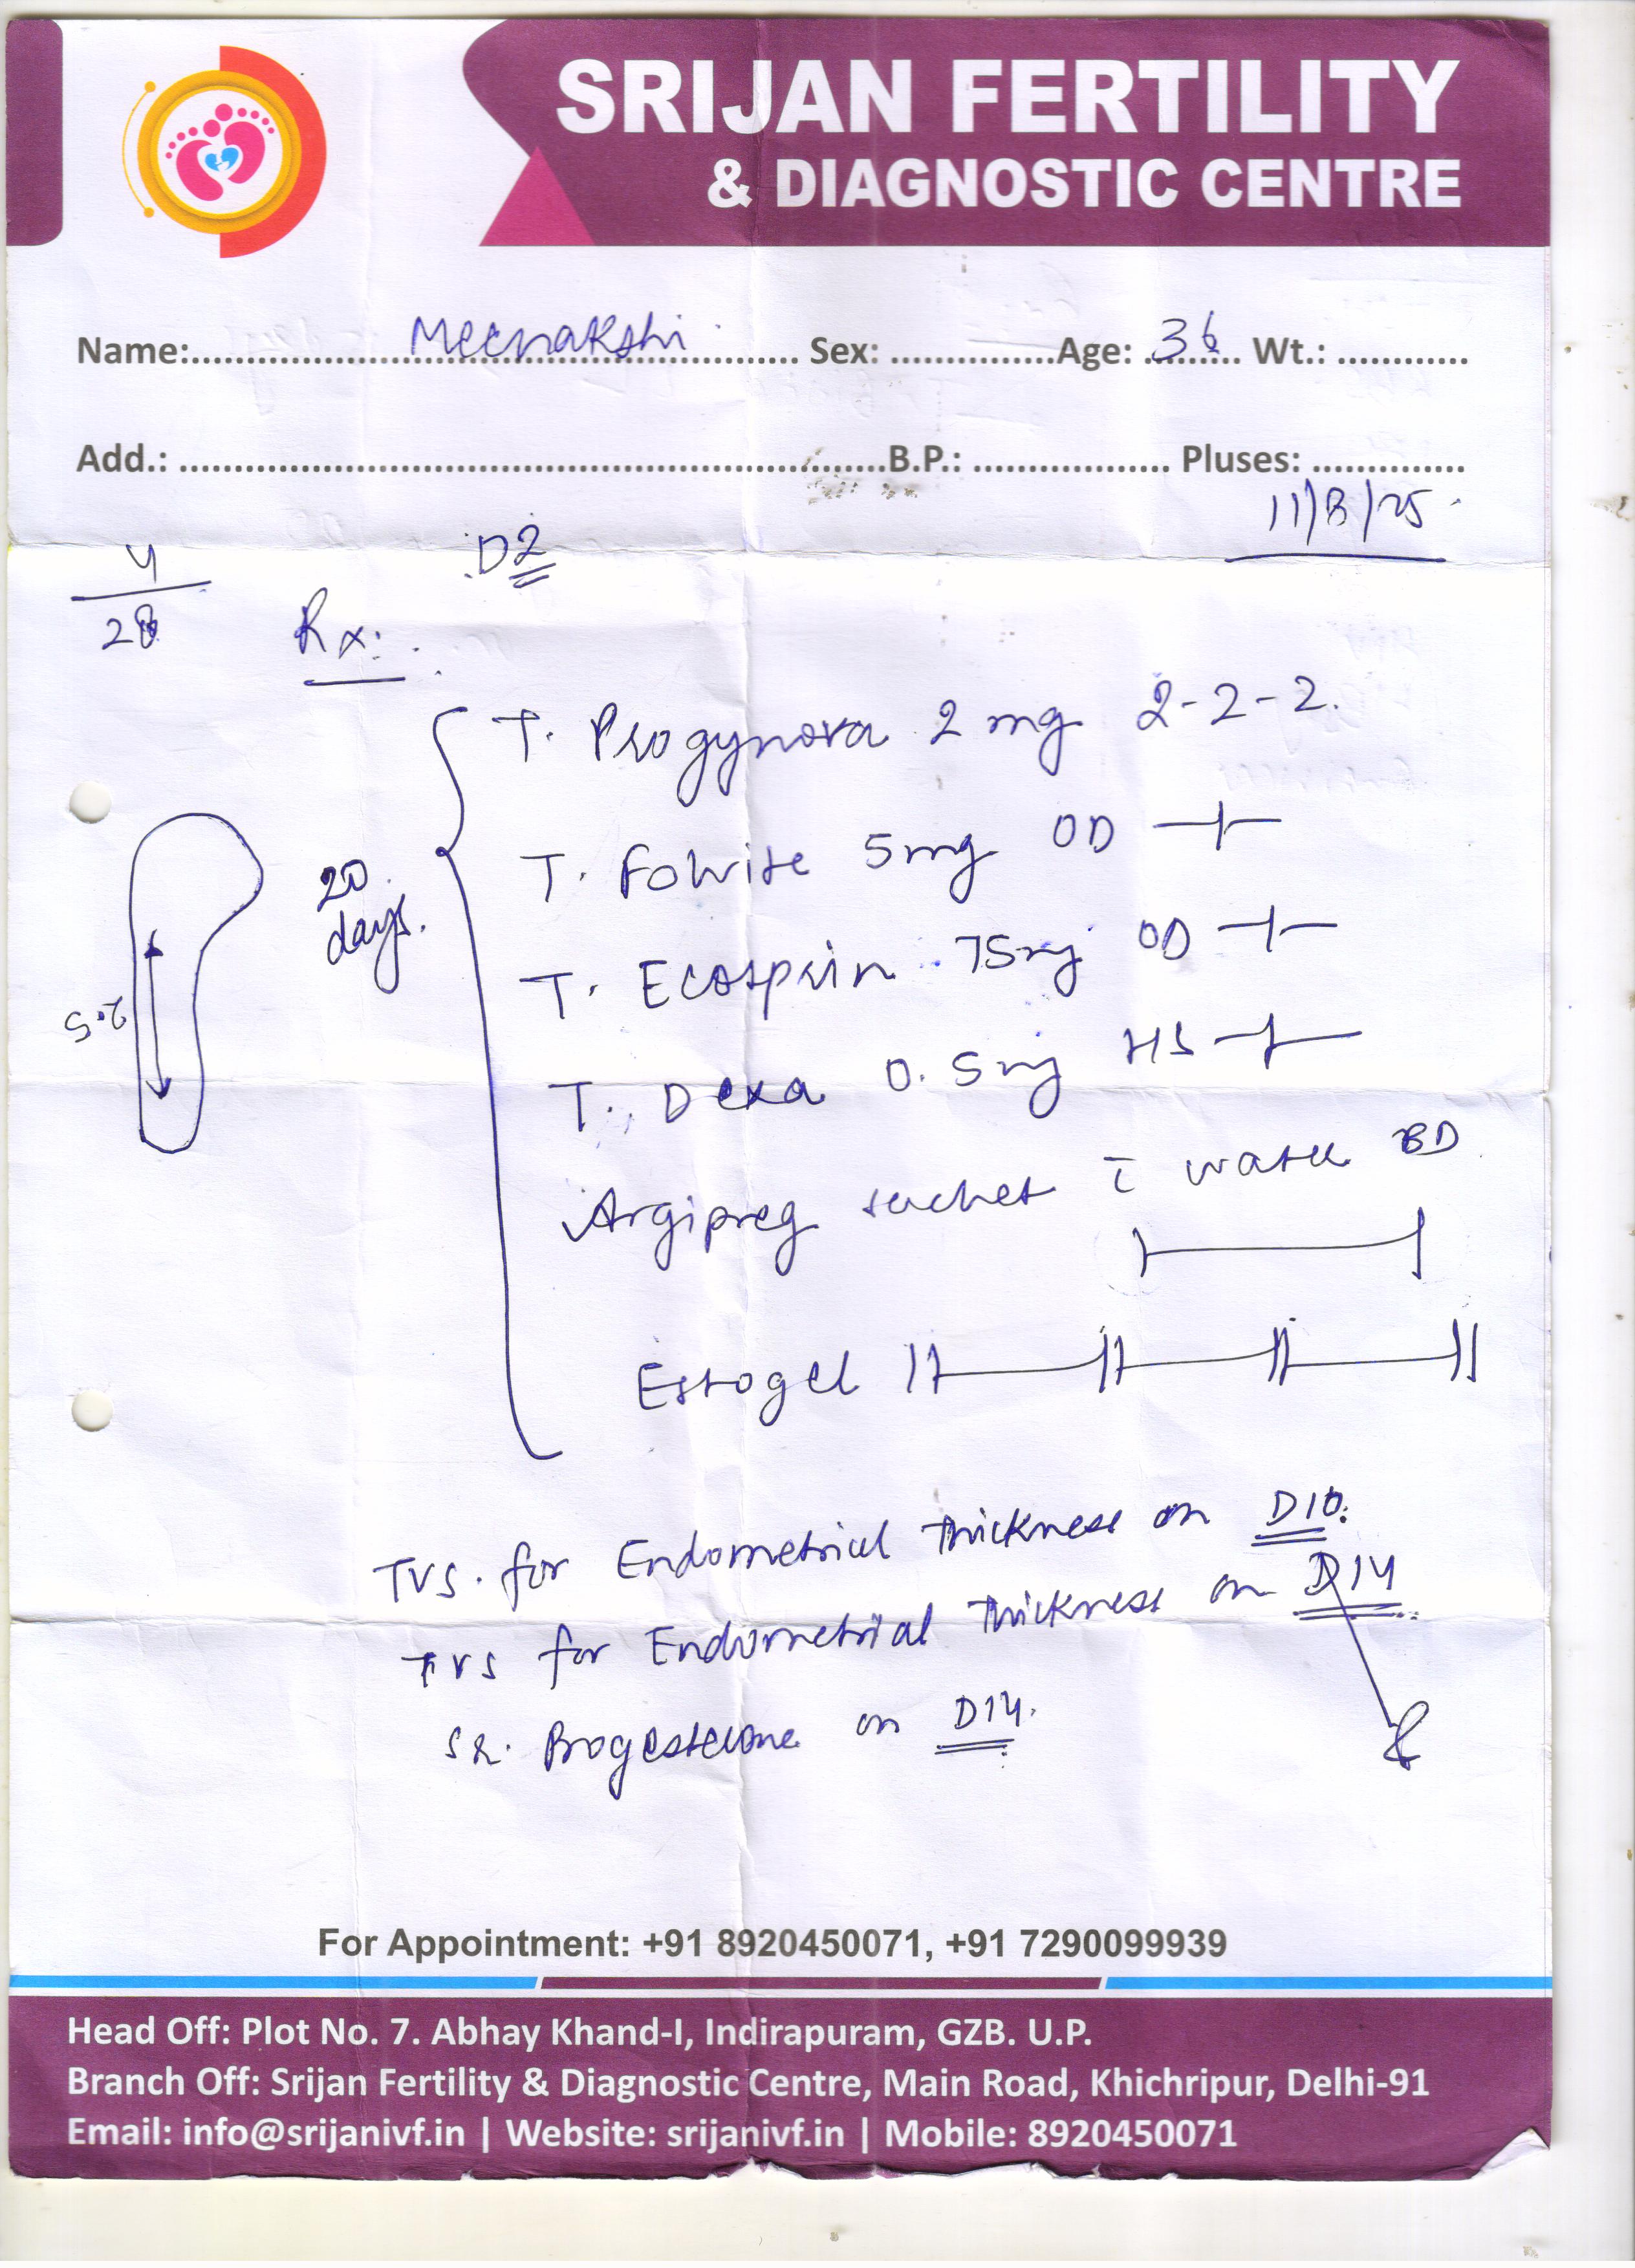 SRIJAN FERTILITY
& DIAGNOSTIC CENTRE
Name: Meenakshi Sex: Age: 36 Wt.:
Add.: B.P.: Pluses:
11/8/25
4
28
D2
Rx:
T. Progynova 2 mg 2-2-2.
T. Folvite 5mg OD
20 days.
T. Ecosprin 75mg OD
2.5
T. Dexa 0.5mg HS
Argipreg sachet c water BD
Estogel
TVS. for Endometrial Thickness on D10.
TVS for Endometrial Thickness on D14
Sr. Progesterone on D14.
For Appointment: +91 8920450071, +91 7290099939
Head Off: Plot No. 7. Abhay Khand-I, Indirapuram, GZB. U.P.
Branch Off: Srijan Fertility & Diagnostic Centre, Main Road, Khichripur, Delhi-91
Email: info@srijanivf.in | Website: srijanivf.in | Mobile: 8920450071